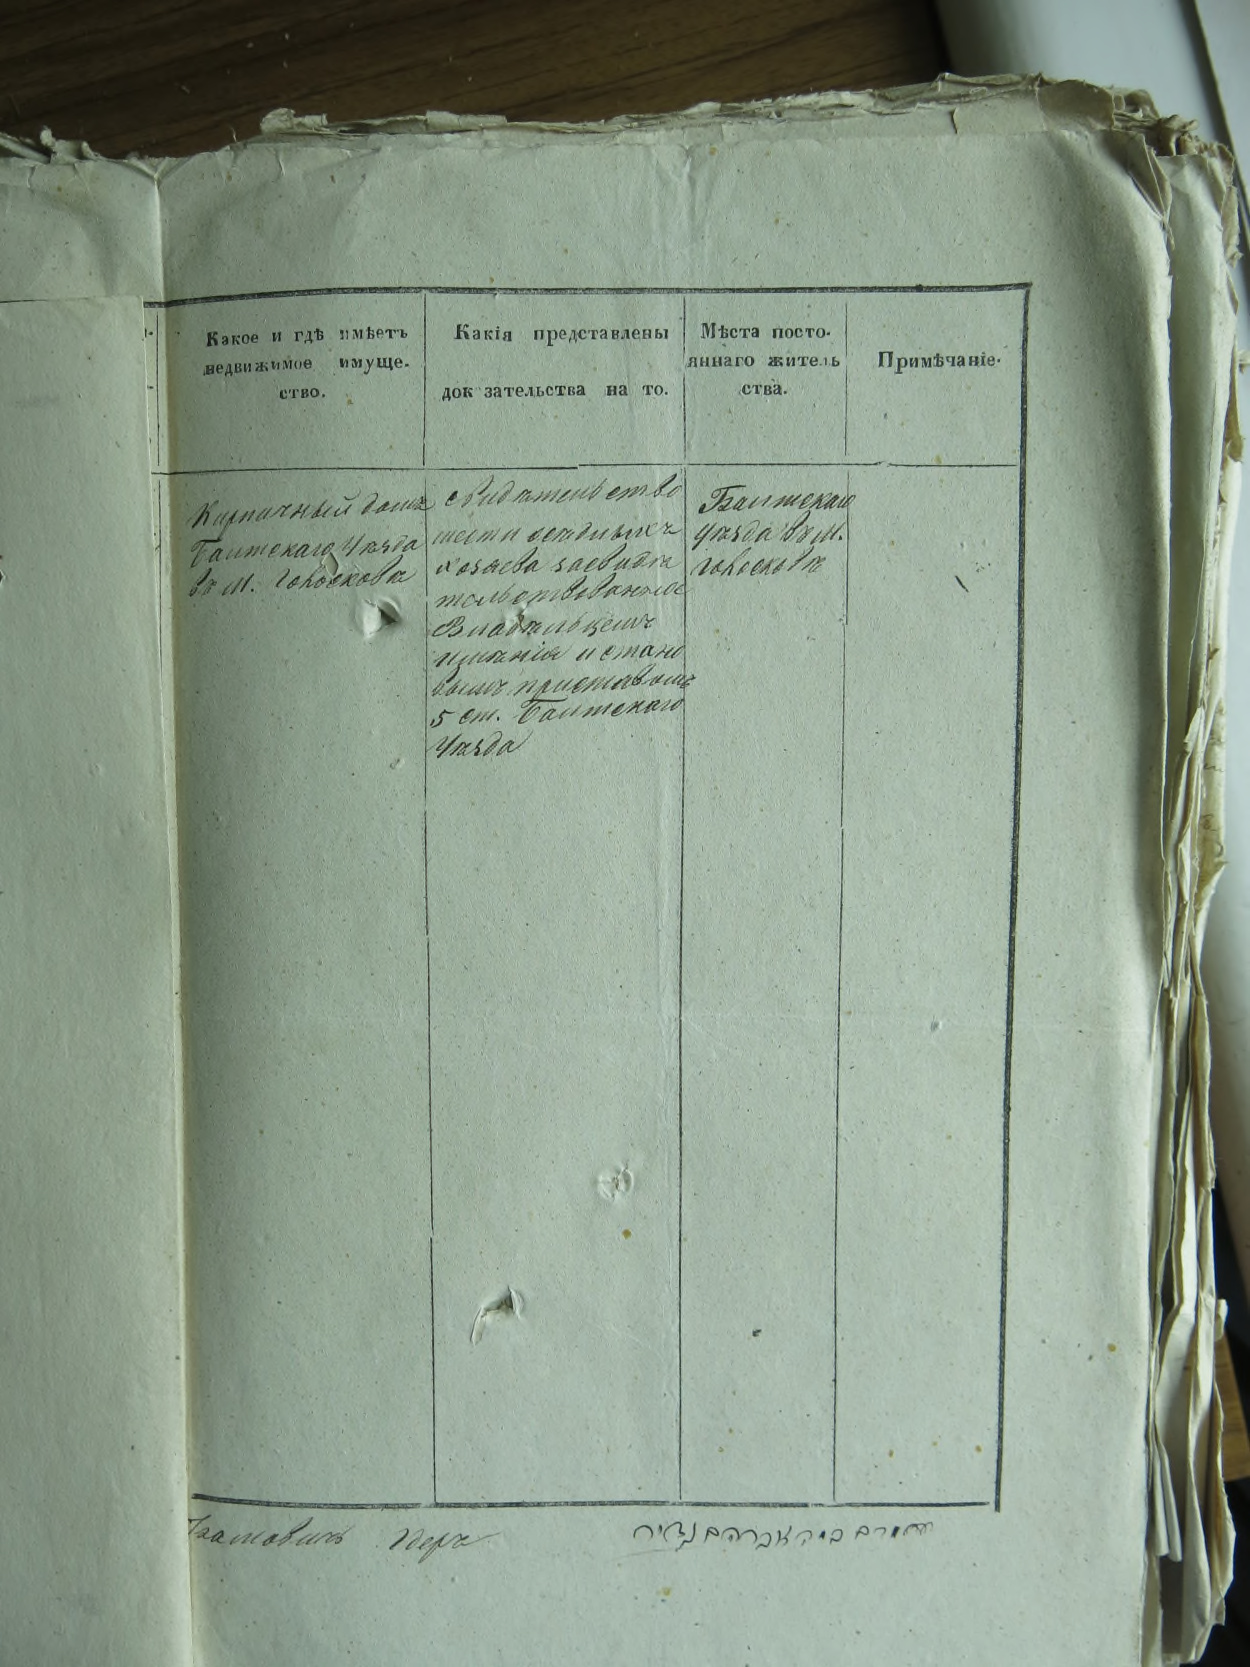 Какое и гдѣ имѣетъ
недвижимое имуще-
ство.
Какія представлены
док зательства на то.
Мѣста посто-
яннаго житель
ства.
Примѣчаніе.
Кирпичный домъ
Балтскаго Уѣзда
въ М. Голосковѣ
свидѣтельство
шести осѣдлыхъ
хозяевъ засвидѣ
тельствованное
Владѣльцемъ
имѣнія и стано
вымъ приставомъ
5 ст. Балтскаго
Уѣзда
Балтскаго
Уѣзда въ М.
Голосковѣ